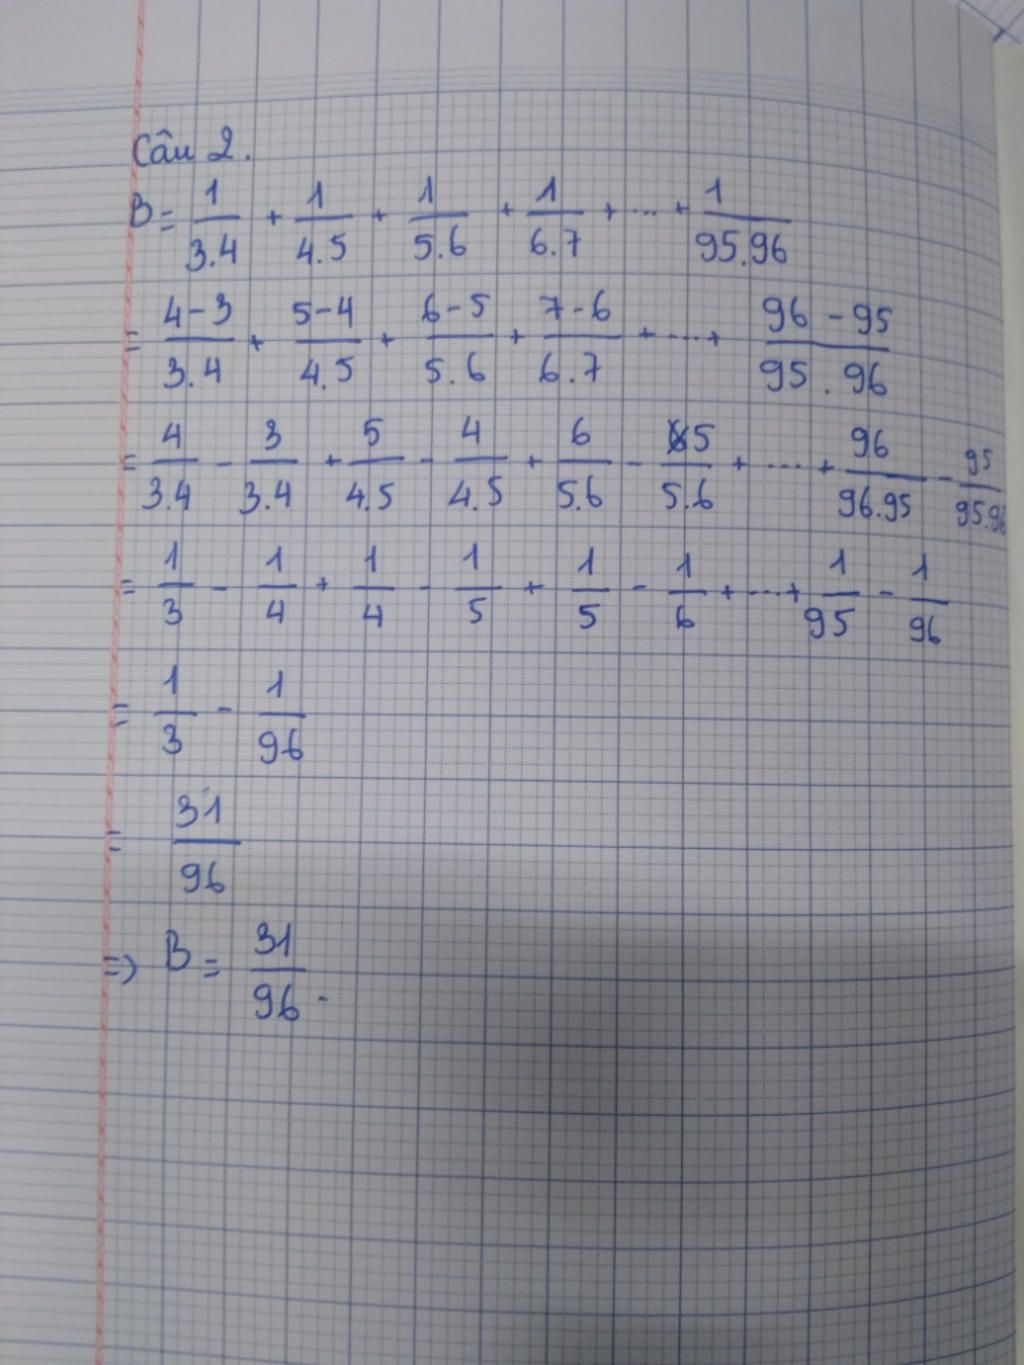 Câu 2.
B = 1/3.4 + 1/4.5 + 1/5.6 + 1/6.7 + ... + 1/95.96
= 4-3/3.4 + 5-4/4.5 + 6-5/5.6 + 7-6/6.7 + ... + 96-95/95.96
= 4/3.4 - 3/3.4 + 5/4.5 - 4/4.5 + 6/5.6 - 5/5.6 + .... + 96/96.95 - 95/95.96
= 1/3 - 1/4 + 1/4 - 1/5 + 1/5 - 1/6 + ... + 1/95 - 1/96
= 1/3 - 1/96
= 31/96
=> B = 31/96.